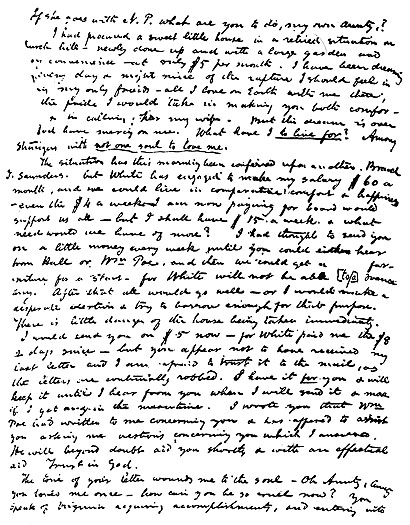 If she goes with N. P. what are you to do, my own Aunty?
I had procured a sweet little house in a retired situation on
Church hill - newly done up and with a large garden and
every convenience - at only $5 per month. I have been dreaming
every day & night since of the rapture I should feel in
in my only friends - all I love on Earth with me there,
the pride I would take in making you both comfor-
& in calling her my wife - But the dream is over
God have mercy on me. What have I to live for? Among
strangers with not one soul to love me.
The situation has this morning been conferred upon another. Branch
T. Saunders. but White has engaged to make my salary $60 a
month, and we could live in comparative comfort & happiness
- even the $4 a week I am now paying for board would
support us all - but I shall have $15 a week & what
need would we have of more? I had thought to send you
on a little money every week until you could either hear
from Hall or Wm. Poe, and then we could get a fur-
niture for a start - for White will not be able to a
After that all would go well - or I would make a
desperate exertion & try to borrow enough for that purpose.
There is little danger of the house being taken immediately.
I would send you on $5 now - for White paid me the $8
2 days since - but you appear not to have received my
last letter and I am afraid to trust it to the mail, as
the letters are continually robbed. I have it for you & will
keep it until I hear from you when I will send it & more
if I get any in the meantime. I wrote you that Wm.
Poe had written to me concerning you & has offered to assist
you asking me questions concerning you which I answered.
He will beyond doubt aid you shortly & with an effectual
aid. Trust in God.
The tone of your letter wounds me to the soul - Oh Aunty, Aunty
you loved me once - how can you be so cruel now? You
speak of Virginia acquiring accomplishments, and entering into